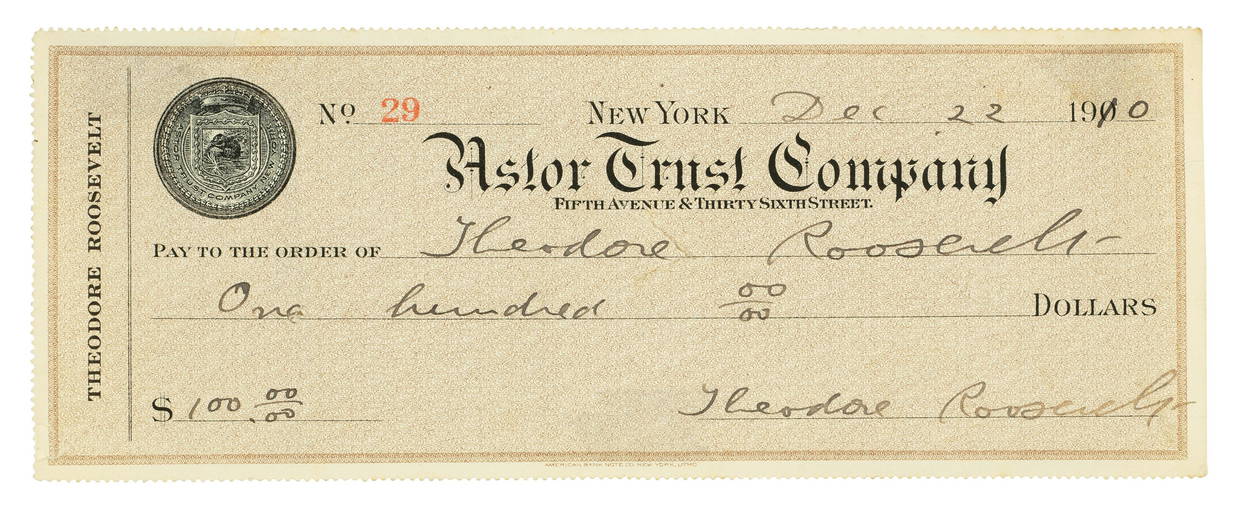 THEODORE ROOSEVELT
ASTOR TRUST COMPANY NEW YORK
No. 29 NEW YORK Dec 22 1910
Astor Trust Company
FIFTH AVENUE & THIRTY SIXTH STREET.
PAY TO THE ORDER OF Theodore Roosevelt
One hundred 00/00 DOLLARS
$ 100.00/00 Theodore Roosevelt
AMERICAN BANK NOTE CO. NEW YORK, LITHO.